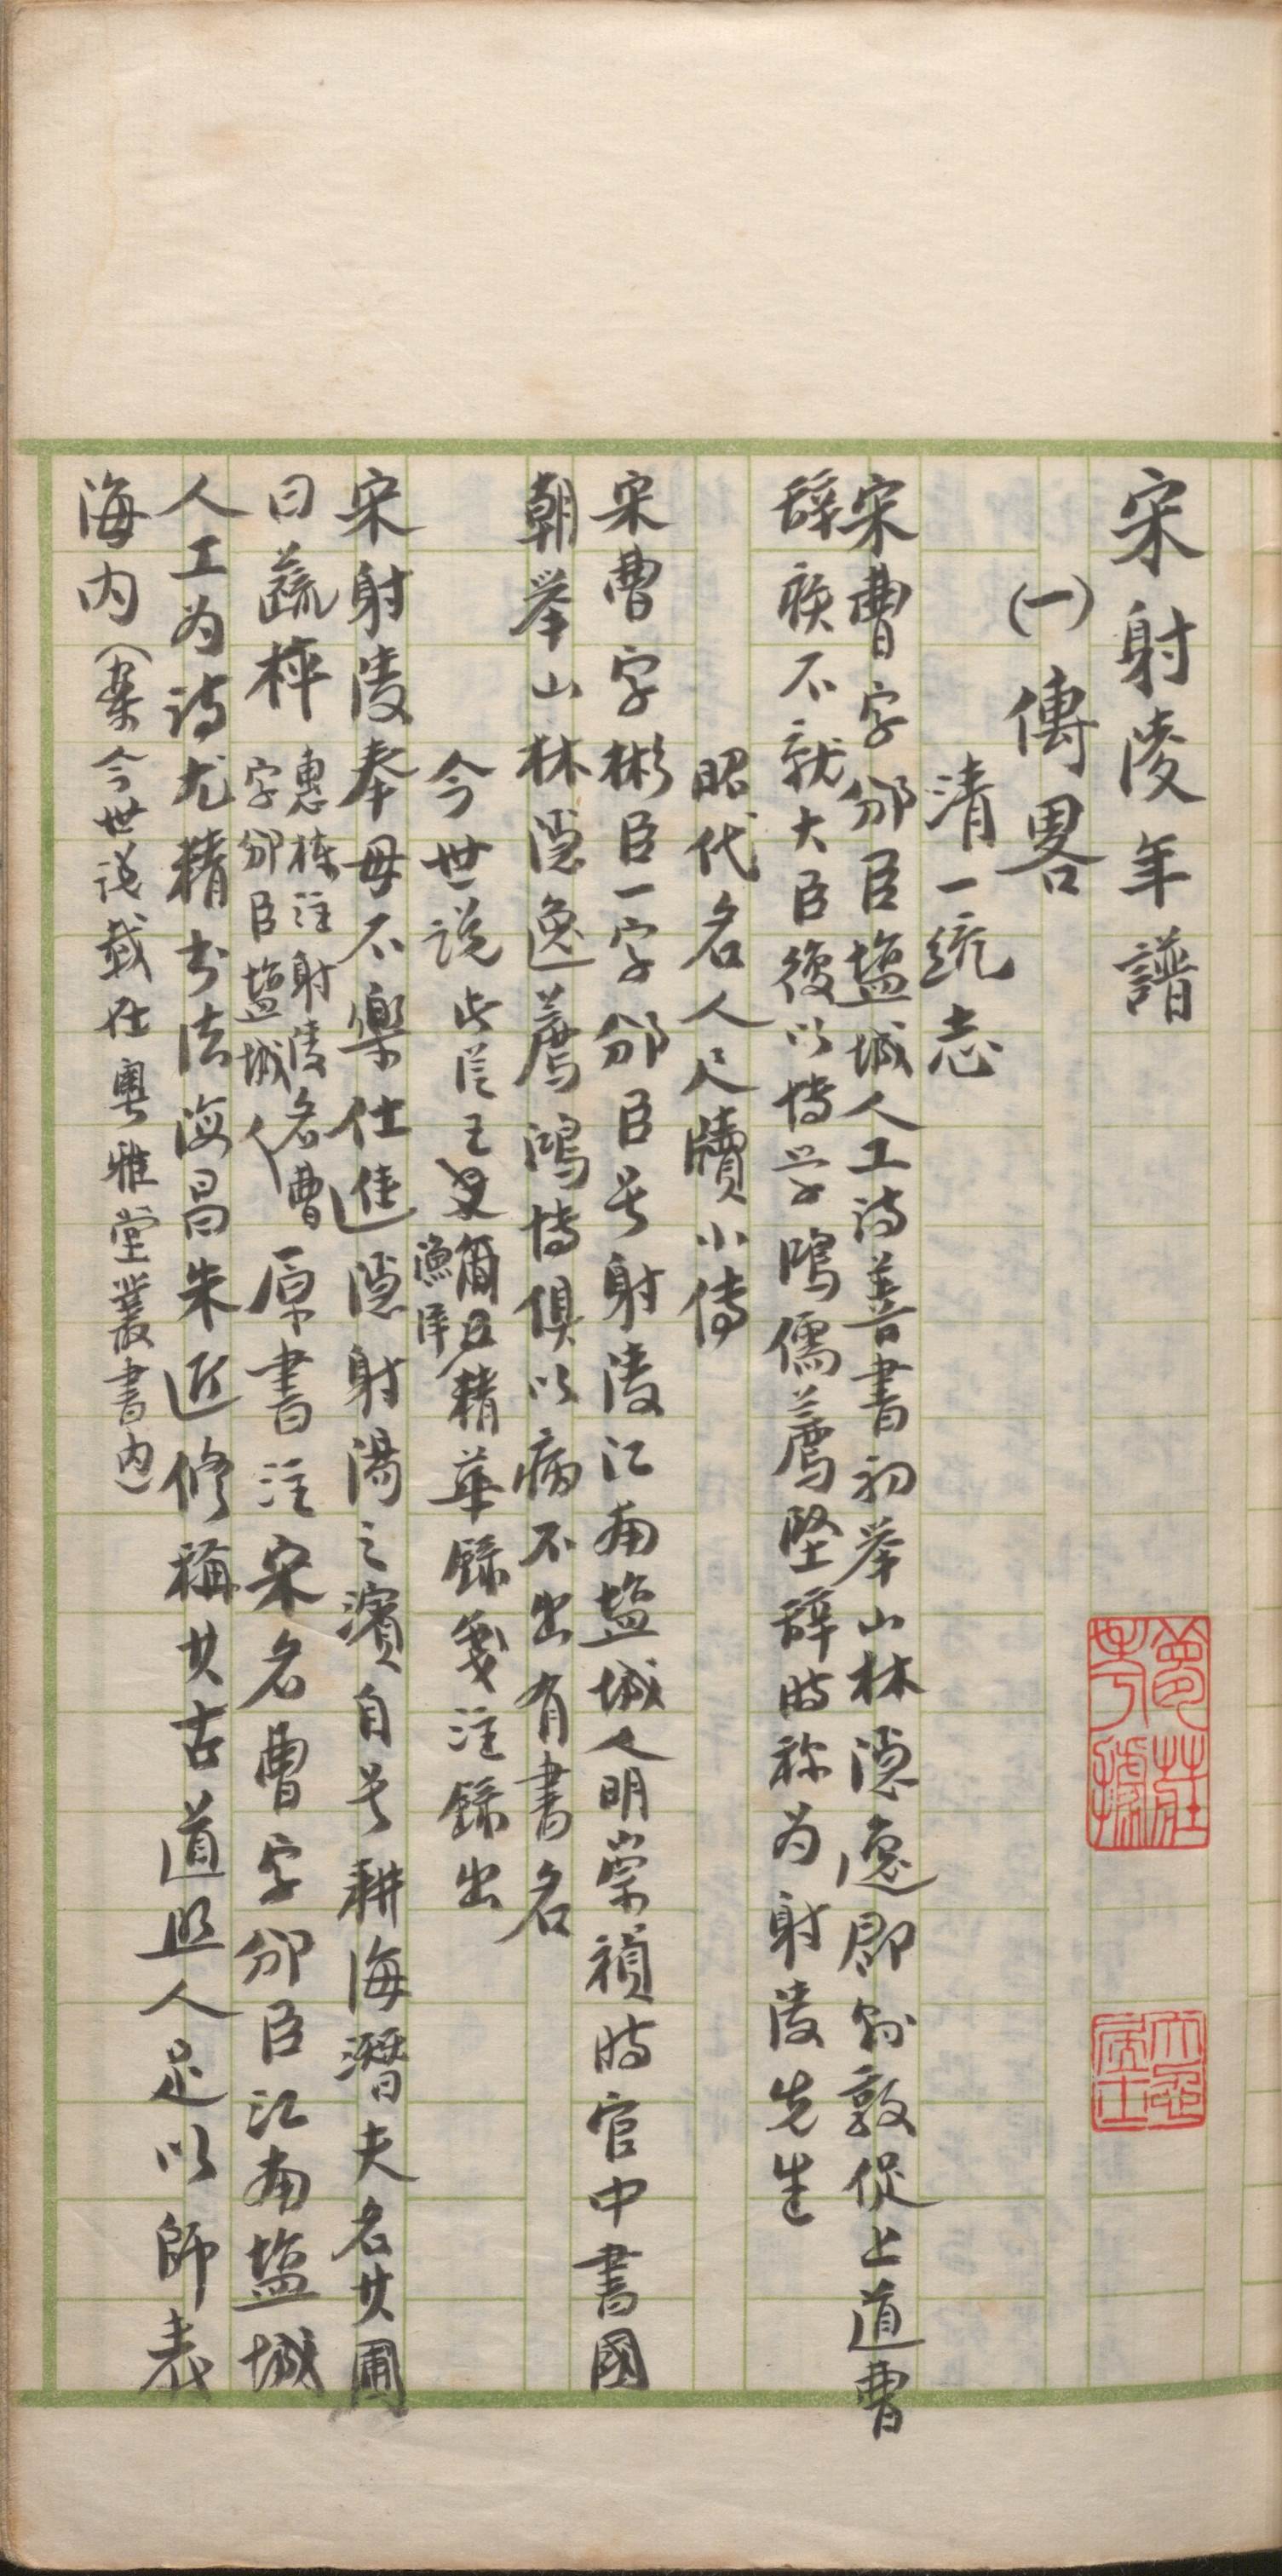 宋射陵年譜
(一)傳畧
清一统志
宋曹字邠臣塩城人工诗善書初举山林隐逸郡县敦促上道曹
辞疾不就大臣復以博学鴻儒薦坚辞时称为射陵先生
昭代名人尺牘小傳
宋曹字彬臣一字邠臣号射陵江南塩城人明崇禎时官中書國
朝举山林隐逸薦鴻博俱以病不出有書名
今世說 此從王漁洋精華錄箋注錄出
宋射陵奉母不樂仕進隐射陽之濱自号耕海潛夫名其圃
曰蔬枰 惠栋注射陵名曹字邠臣塩城人 原書注宋名曹字邠臣江南塩城
人工为诗尤精书法海昌朱近修稱其古道照人足以師表
海内(案今世说载在粤雅堂叢書内)